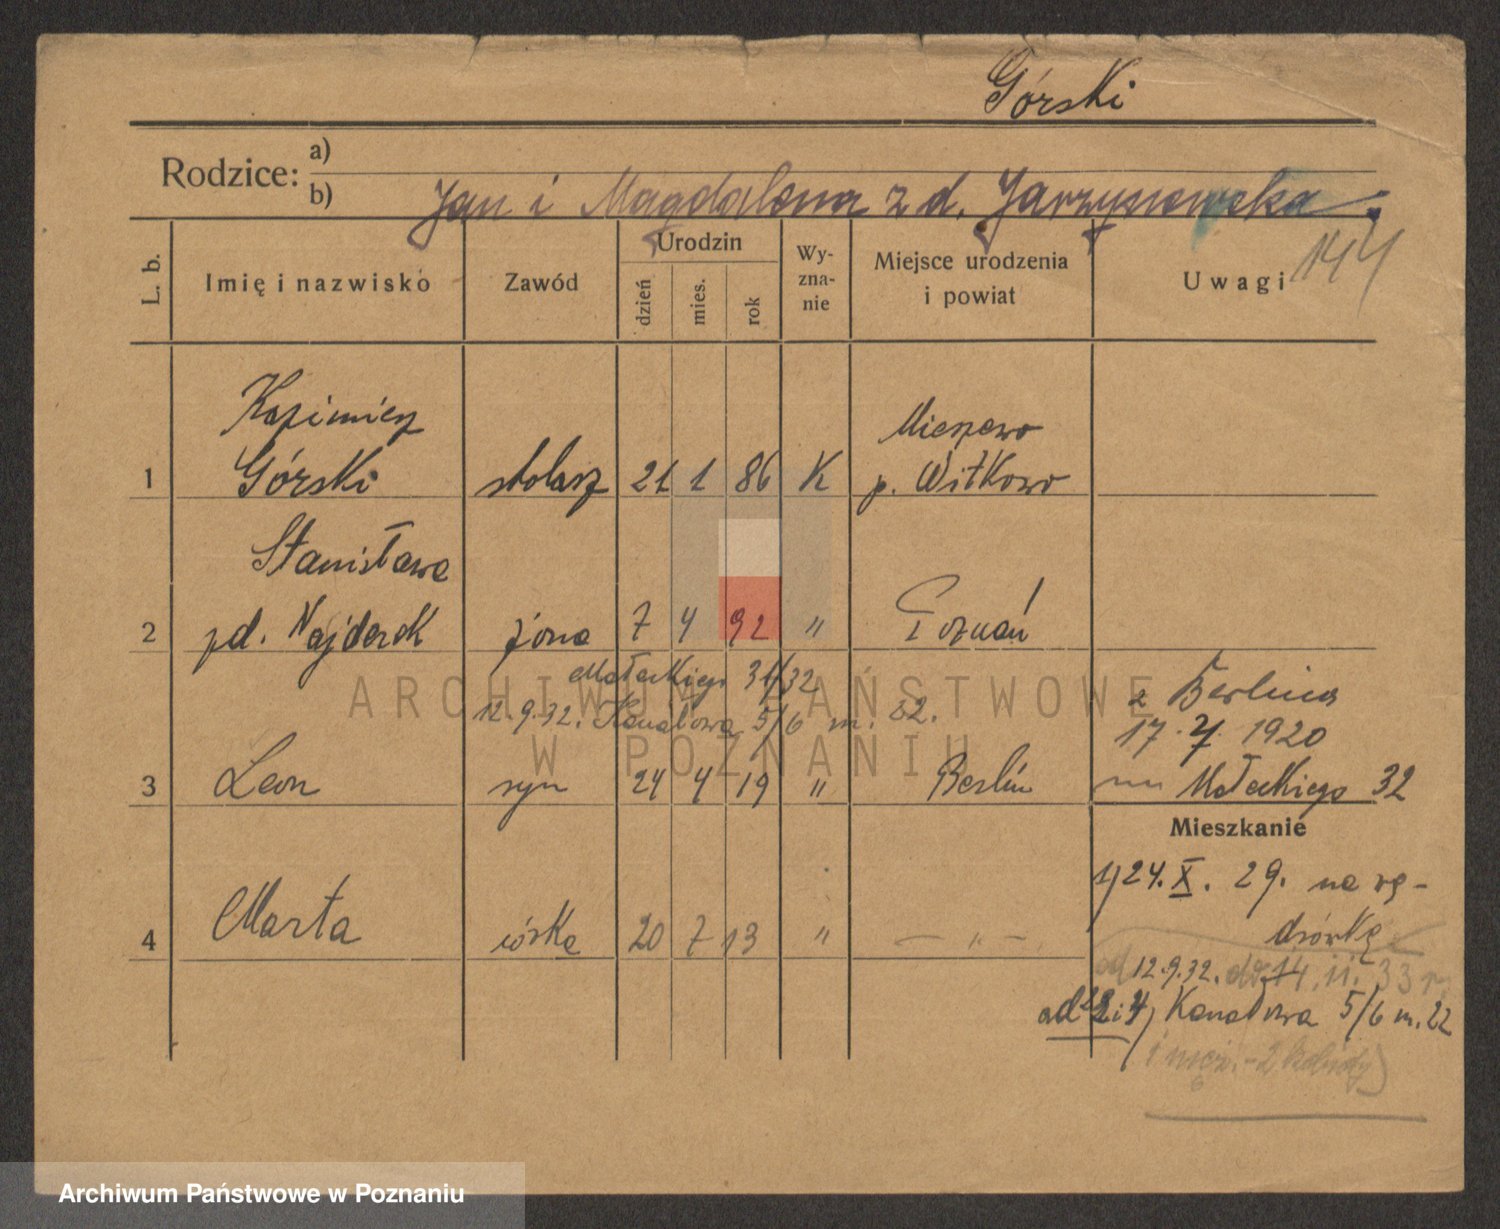 Górski
Rodzice: a)
b) Jan i Magdalena z d. Jarzyniewska
144
L. b. Imię i nazwisko Zawód Urodzin dzień mies. rok Wyzna-nie Miejsce urodzenia i powiat Uwagi
Kazimierz
1 Górski stolarz 21 1 86 K Mierzewo p. Witkowo
Stanisława
2 zd. Najderek żona 7 4 92 " Poznań
Małeckiego 31/32
12.9.32. Kanałowa 5/6 m. 22.
z Berlina
17.7. 1920
3 Leon syn 24 4 19 " Berlin
Małeckiego 32
Mieszkanie
1) 24. X. 29. na wę-
drówkę
4 Marta córka 20 7 13 " — " —
od 12.9.32. do 14.11.33 r.
Kanałowa 5/6 m. 22
ARCHIWUM PAŃSTWOWE
W POZNANIU
Archiwum Państwowe w Poznaniu